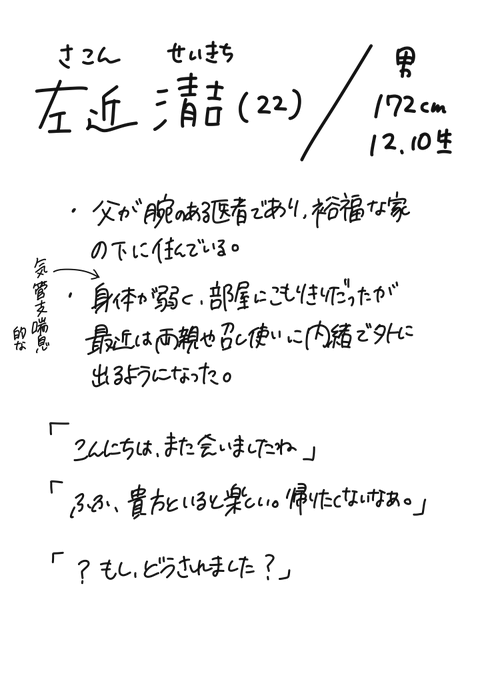 さこん せいきち
左近 清吉(22)
男
172cm
12.10生
・父が腕のある医者であり、裕福な家
の下に住んでいる。
気管支喘息
的な
・身体が弱く、部屋にこもりきりだったが
最近は両親や召し使いに内緒で外に
出るようになった。
「こんにちは、また会いましたね」
「ふふ、貴方といると楽しい。帰りたくないなあ。」
「?もし、どうされました?」